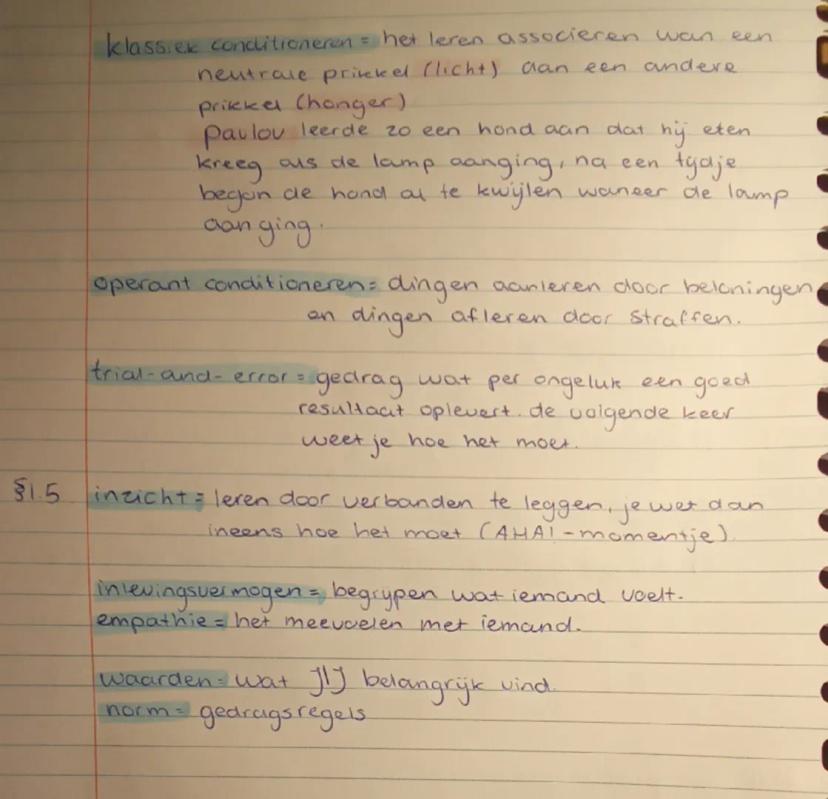 klassiek conditioneren = het leren associeren wan een
neutrale prikkel (licht) aan een andere
prikkel (honger)
Pavlov leerde zo een hond aan dat hij eten
kreeg als de lamp aanging, na een tijdje
begon de hond al te kwijlen waneer de lamp
aan ging.
operant conditioneren = dingen aanleren door beloningen
en dingen afleren door straffen.
trial-and-error = gedrag wat per ongeluk een goed
resultaat oplevert. de volgende keer
weet je hoe het moet.
§1.5 inzicht = leren door verbanden te leggen, je wet dan
ineens hoe het moet (AHA!-momentje).
inlevingsvermogen = begrijpen wat iemand voelt.
empathie = het meevoelen met iemand.
waarden = wat JIJ belangrijk vind.
norm = gedragsregels